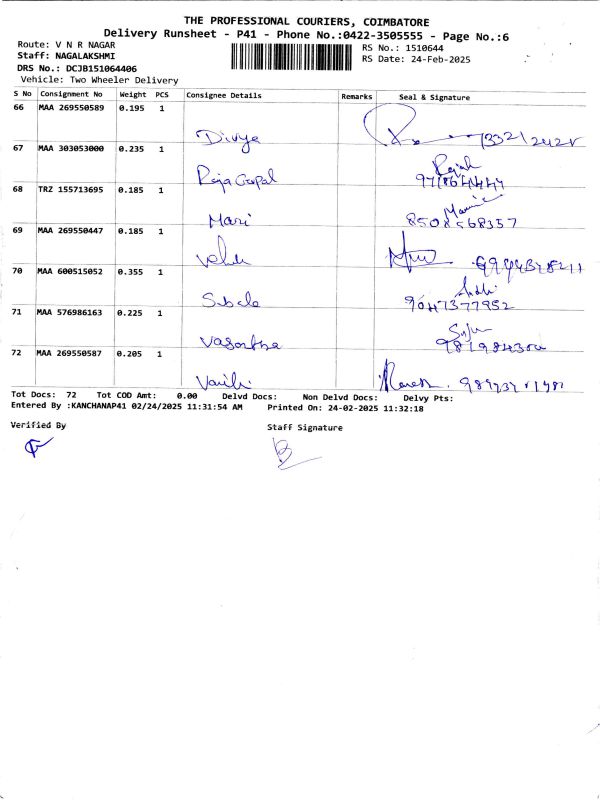 THE PROFESSIONAL COURIERS, COIMBATORE
Delivery Runsheet - P41 - Phone No.:0422-3505555 - Page No.:6
Route: V N R NAGAR
RS No.: 1510644
Staff: NAGALAKSHMI
RS Date: 24-Feb-2025
DRS No.: DCJB151064406
Vehicle: Two Wheeler Delivery
S No Consignment No Weight PCS Consignee Details Remarks Seal & Signature
66 MAA 269550589 0.195 1
Divya
67 MAA 303053000 0.235 1
Raja Gopal
68 TRZ 155713695 0.185 1
Mari 8508568357
69 MAA 269550447 0.185 1
70 MAA 600515052 0.355 1
9047377952
71 MAA 576986163 0.225 1
72 MAA 269550587 0.205 1
Tot Docs: 72 Tot COD Amt: 0.00 Delvd Docs: Non Delvd Docs: Delvy Pts:
Entered By :KANCHANAP41 02/24/2025 11:31:54 AM Printed On: 24-02-2025 11:32:18
Verified By
Staff Signature